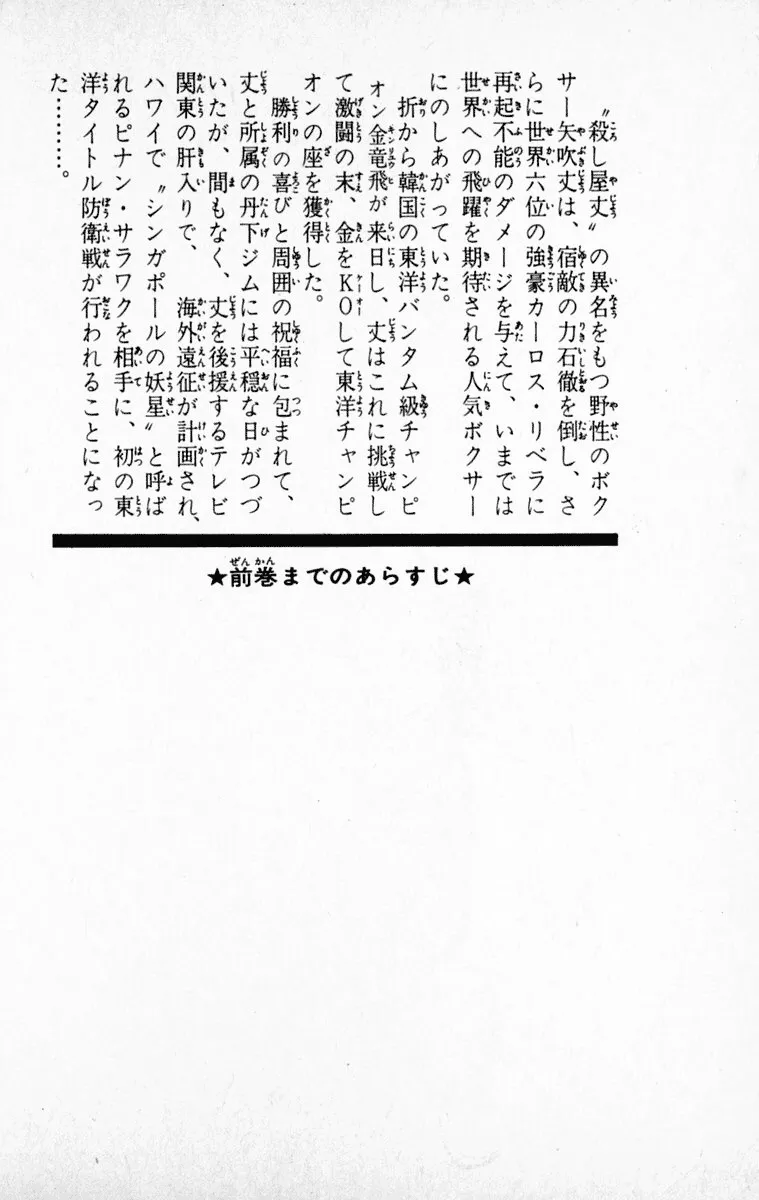 〝殺し屋丈〟の異名をもつ野性のボク
サー矢吹丈は、宿敵の力石徹を倒し、さ
らに世界六位の強豪カーロス・リベラに
再起不能のダメージを与えて、いまでは
世界への飛躍を期待される人気ボクサー
にのしあがっていた。
折から韓国の東洋バンタム級チャンピ
オン金竜飛が来日し、丈はこれに挑戦し
て激闘の末、金をKOして東洋チャンピ
オンの座を獲得した。
勝利の喜びと周囲の祝福に包まれて、
丈と所属の丹下ジムには平穏な日がつづ
いたが、間もなく、丈を後援するテレビ
関東の肝入りで、　海外遠征が計画され、
ハワイで〝シンガポールの妖星〟と呼ば
れるピナン・サラワクを相手に、初の東
洋タイトル防衛戦が行われることになっ
た………。
★前巻までのあらすじ★